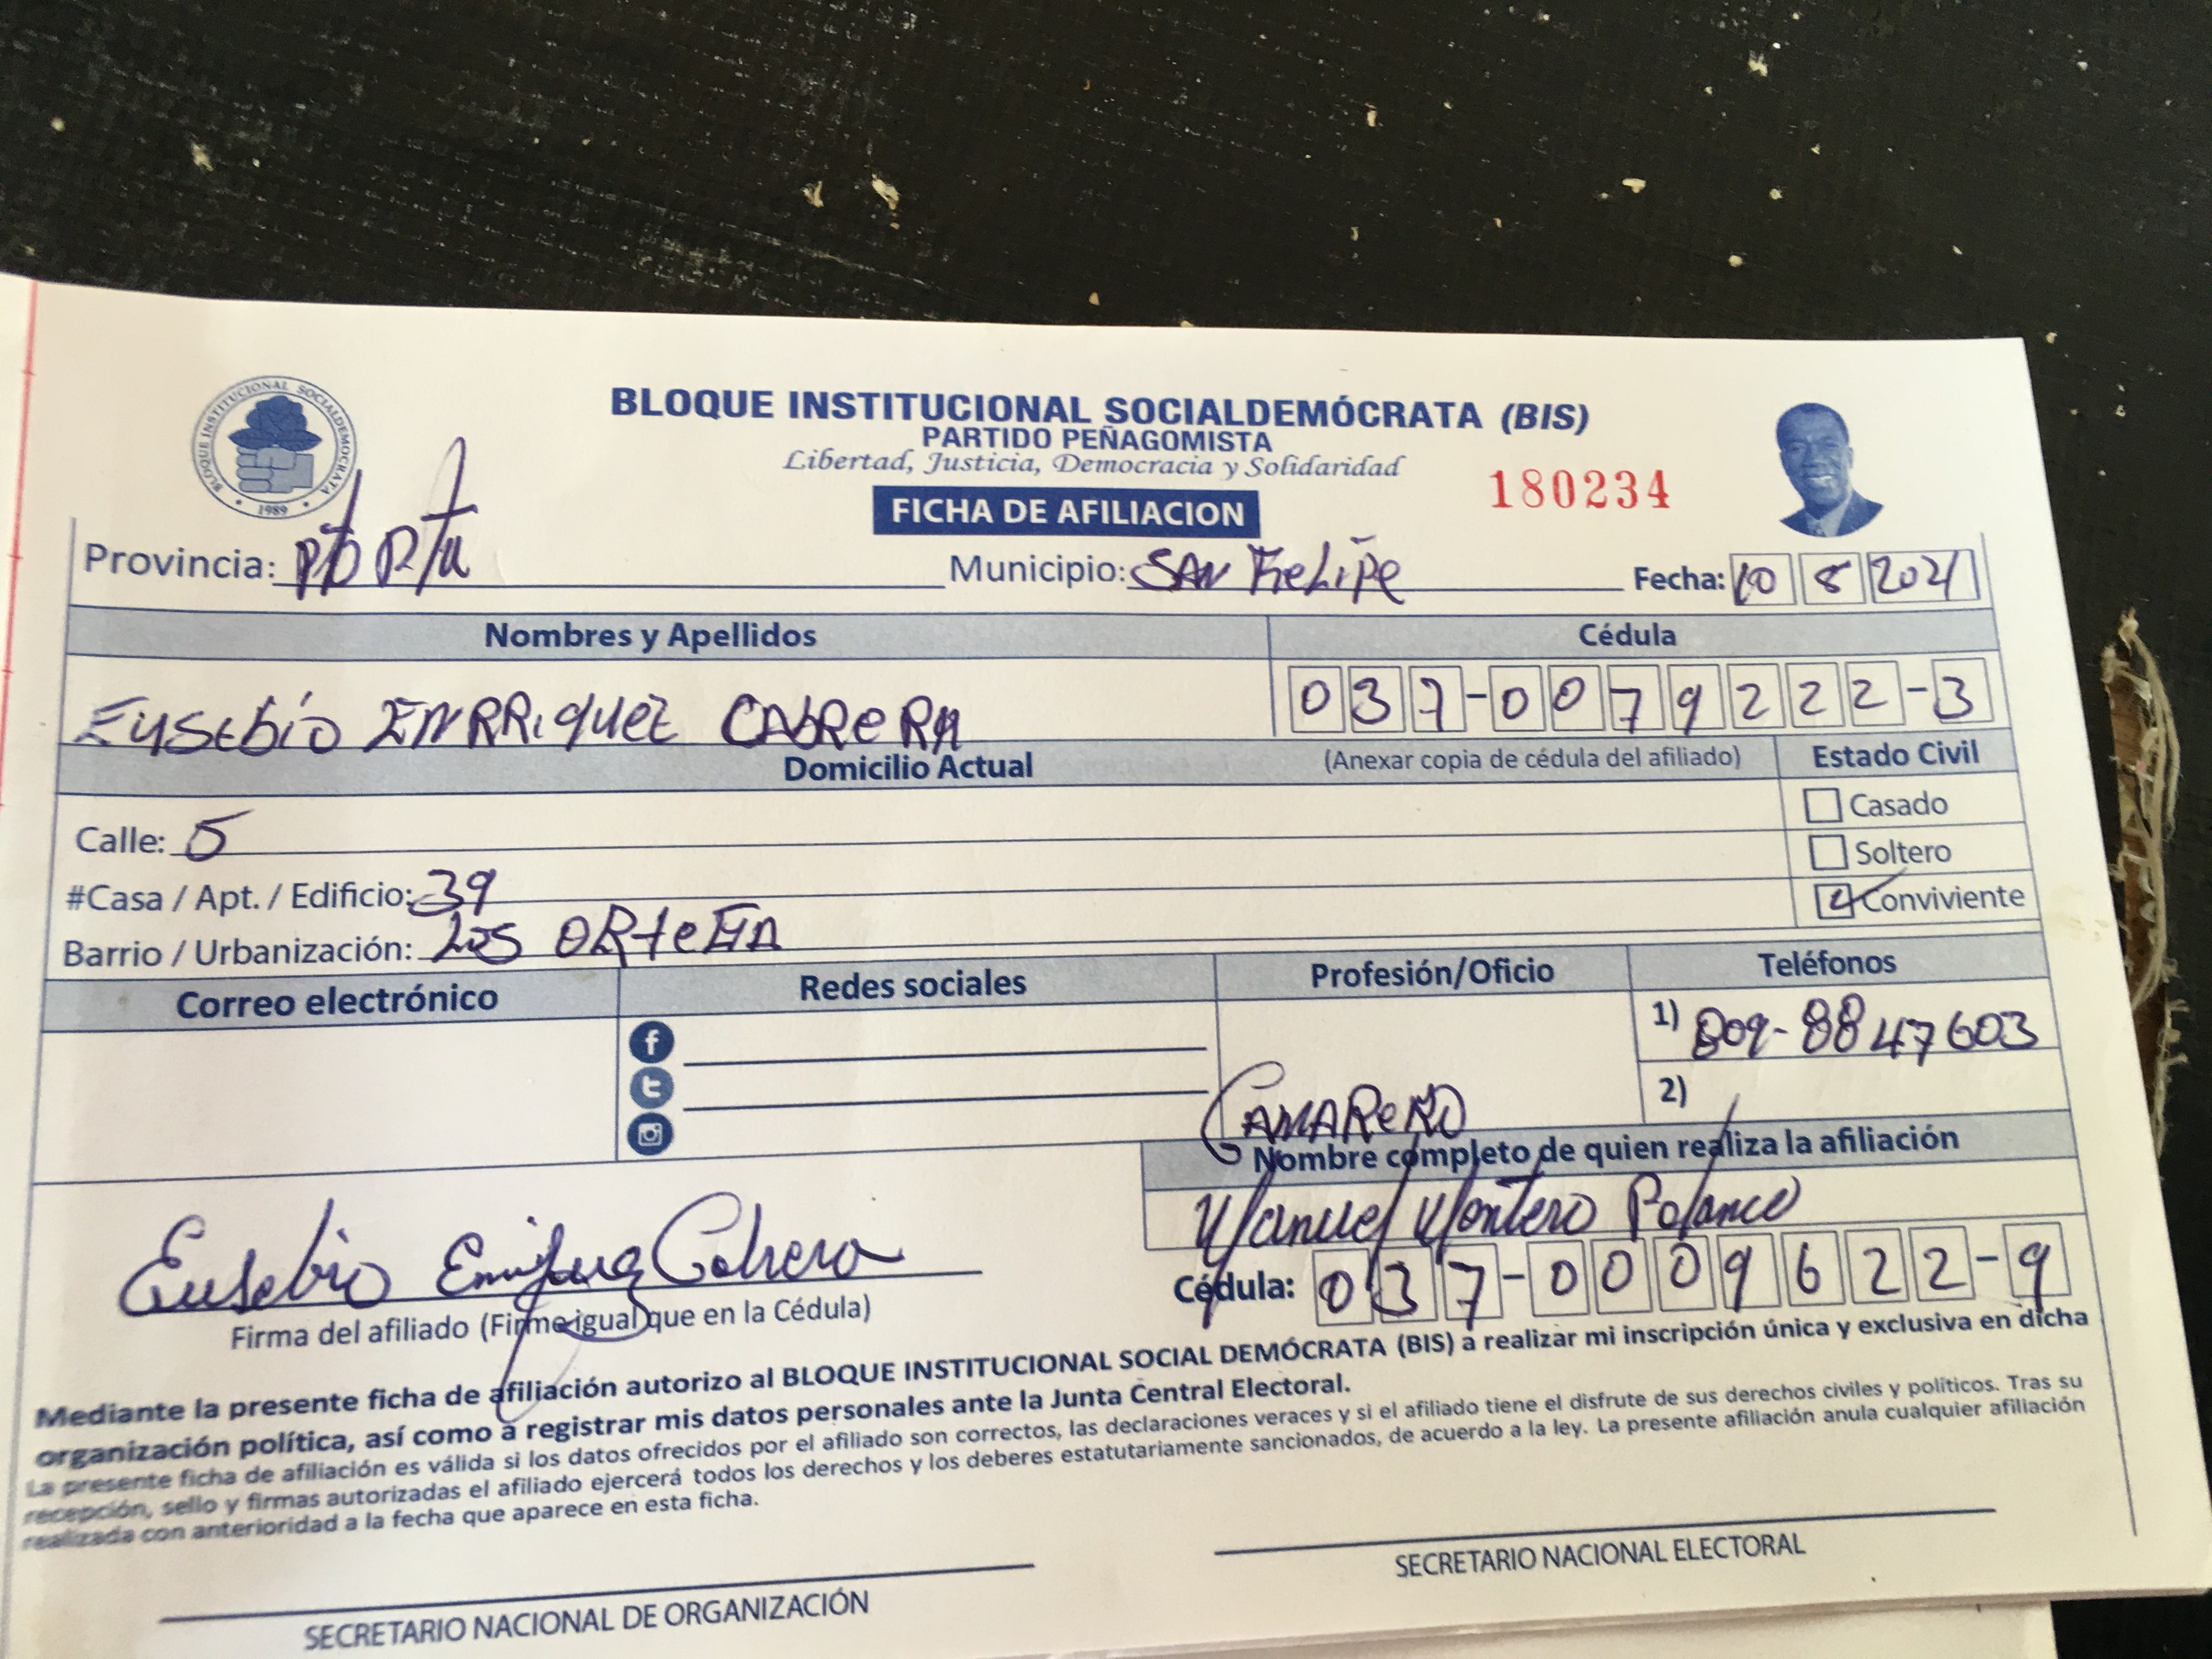 BLOQUE INSTITUCIONAL SOCIALDEMOCRATA
1989
BLOQUE INSTITUCIONAL SOCIALDEMÓCRATA (BIS)
PARTIDO PEÑAGOMISTA
Libertad, Justicia, Democracia y Solidaridad
180234
FICHA DE AFILIACION
Provincia: Pto Pta Municipio: SAN FeLiPe Fecha: 10 8 2021
Nombres y Apellidos Cédula
EUSEbio ENRRiquez CAbReRA 037-0079222-3
Domicilio Actual (Anexar copia de cédula del afiliado) Estado Civil
Casado
Calle: 5
Soltero
#Casa / Apt. / Edificio: 39
Conviviente
Barrio / Urbanización: Los
Correo electrónico Redes sociales Profesión/Oficio Teléfonos
1) 809-8847603
2)
CAMAReRO
Nombre completo de quien realiza la afiliación
Manuel Montero Polanco
Eusebio Enriquez Cabrera
Cédula: 037-0009622-9
Firma del afiliado (Firme igual que en la Cédula)
Mediante la presente ficha de afiliación autorizo al BLOQUE INSTITUCIONAL SOCIAL DEMÓCRATA (BIS) a realizar mi inscripción única y exclusiva en dicha
organización política, así como a registrar mis datos personales ante la Junta Central Electoral.
La presente ficha de afiliación es válida si los datos ofrecidos por el afiliado son correctos, las declaraciones veraces y si el afiliado tiene el disfrute de sus derechos civiles y políticos. Tras su
recepción, sello y firmas autorizadas el afiliado ejercerá todos los derechos y los deberes estatutariamente sancionados, de acuerdo a la ley. La presente afiliación anula cualquier afiliación
realizada con anterioridad a la fecha que aparece en esta ficha.
SECRETARIO NACIONAL DE ORGANIZACIÓN
SECRETARIO NACIONAL ELECTORAL